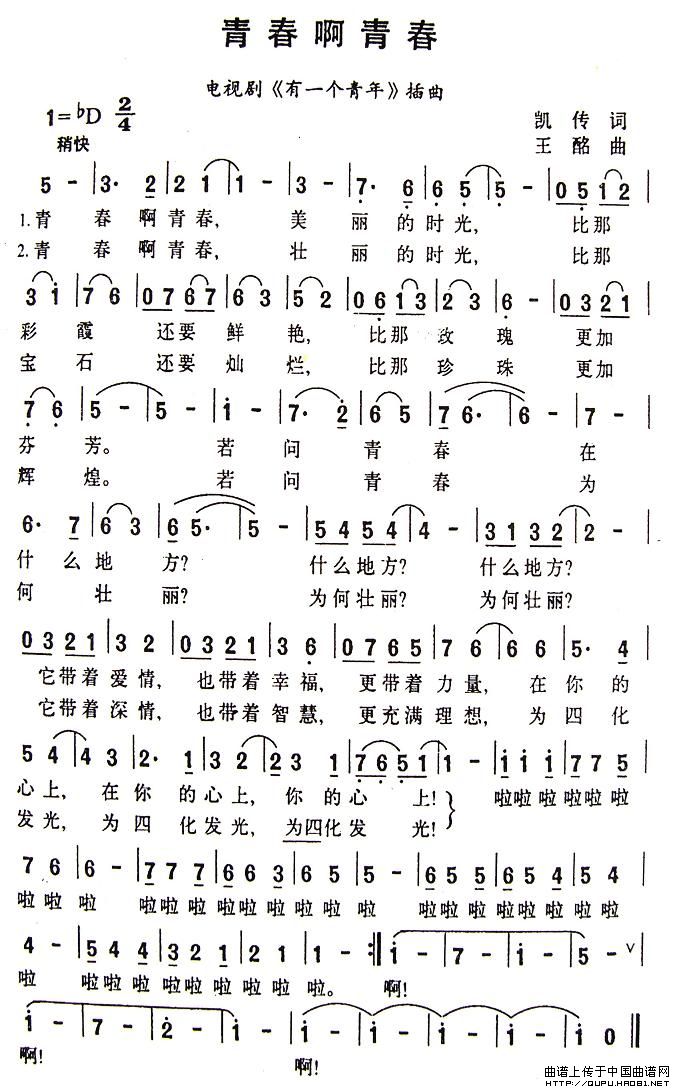 青春啊青春
电视剧《有一个青年》插曲
1=♭D 2/4
凯传词
稍快
王酩曲
5 - | 3· 2 | 2 2 1 | 1 - | 3 - | 7· 6 | 6 5 | 5 - | 0 5 1 2 |
1.青 春 啊青春, 美 丽 的时光, 比那
2.青 春 啊青春, 壮 丽 的时光, 比那
3 i | 7 6 | 0 7 6 7 | 6 3 | 5 2 | 0 6 1 3 | 2 3 | 6 - | 0 3 2 1 |
彩 霞 还要 鲜 艳, 比那 玫 瑰 更加
宝 石 还要 灿 烂, 比那 珍 珠 更加
7 6 | 5 - | 5 - | i - | 7· 2 | 6 5 | 7 6· | 6 - | 7 - |
芬 芳。 若 问 青 春 在
辉 煌。 若 问 青 春 为
6· 7 | 6 3 | 6 5· | 5 - | 5 4 5 4 | 4 - | 3 1 3 2 | 2 - |
什 么 地 方? 什么地方? 什么地方?
何 壮 丽? 为何壮丽? 为何壮丽?
0 3 2 1 | 3 2 | 0 3 2 1 | 3 6 | 0 7 6 5 | 7 6 | 6 6 | 5· 4 |
它带着 爱情, 也带着 幸福, 更带着 力量, 在你的
它带着 深情, 也带着 智慧, 更充满 理想, 为四化
5 4 | 4 3 | 2· 1 | 3 2 | 2 3 1 | 7 6 5 1 | 1 - | i i i | 7 7 5 |
心上, 在你 的心上, 你的心 上! 啦啦 啦 啦啦 啦
发光, 为四 化发光, 为四化发 光!
7 6 | 6 - | 7 7 7 | 6 6 3 | 6 5 | 5 - | 6 5 5 | 6 5 4 | 5 4 |
啦 啦 啦 啦啦 啦 啦啦 啦 啦 啦 啦 啦啦 啦 啦啦 啦 啦 啦
4 - | 5 4 4 | 3 2 1 | 2 1 | 1 - :‖ i - | 7 - | i - | 5 - ∨ |
啦 啦啦 啦 啦啦 啦 啦 啦 啦。 啊!
i - | 7 - | 2 - | i - | i - | i - | i 0 ‖
啊! 啊!
曲谱上传于中国曲谱网
HTTP://QUPU.HAO81.NET